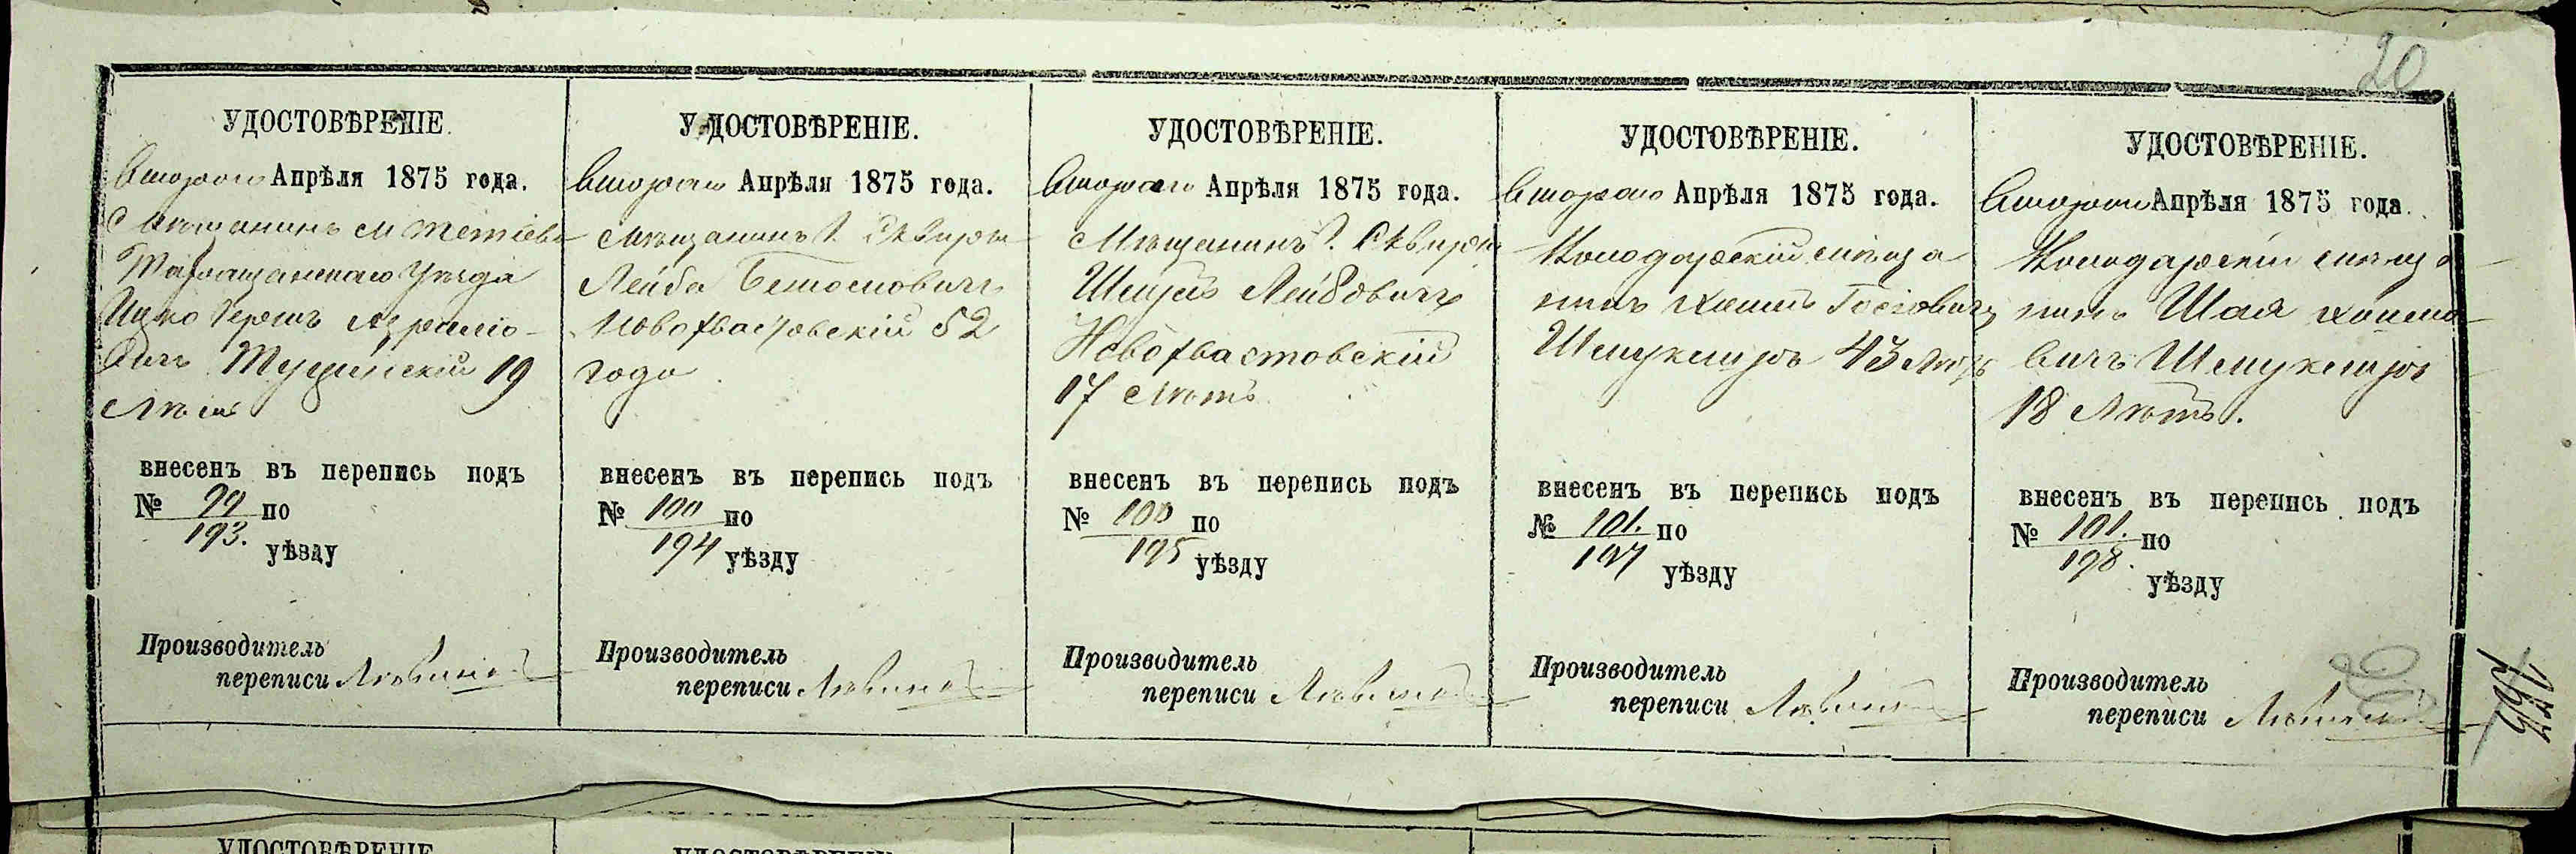 20
УДОСТОВѢРЕНІЕ.
Втораго Апрѣля 1875 года.
Мѣщанинъ м Тетіева
Таращанскаго Уѣзда
Ицко Гершъ
вичъ 19
Лѣтъ
внесенъ въ перепись подъ
№ 99 по
193. уѣзду
Производитель
переписи
УДОСТОВѢРЕНІЕ.
Втораго Апрѣля 1875 года.
Мѣщанинъ г. Сквиры
Лейба
Новофвастовскій 52
года
внесенъ въ перепись подъ
№ 100 по
194 уѣзду
Производитель
переписи
УДОСТОВѢРЕНІЕ.
Втораго Апрѣля 1875 года.
Мѣщанинъ г. Сквиры
Лейбовичъ
Новофвастовскій
17 Лѣтъ
внесенъ въ перепись подъ
№ 100 по
195 уѣзду
Производитель
переписи
УДОСТОВѢРЕНІЕ.
Втораго Апрѣля 1875 года.
Володарскій мѣща
нинъ
Шмуклиръ 43 Лѣтъ
внесенъ въ перепись подъ
№ 101. по
197 уѣзду
Производитель
переписи
УДОСТОВѢРЕНІЕ.
Втораго Апрѣля 1875 года.
Володарскій мѣща
нинъ Шая
вичъ Шмуклиръ
18 Лѣтъ.
внесенъ въ перепись подъ
№ 101. по
198. уѣзду
Производитель
переписи
20
УДОСТОВѢРЕНІЕ